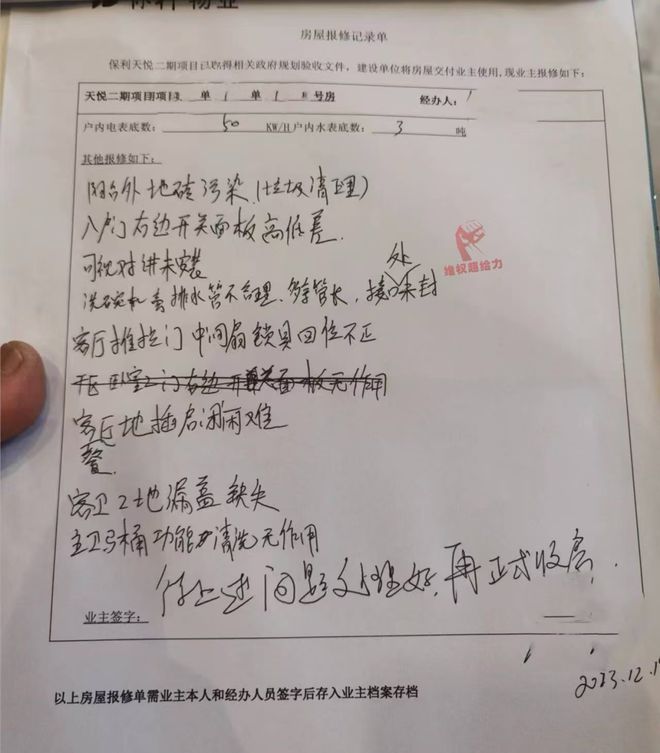 保利物业
房屋报修记录单
保利天悦二期项目已取得相关政府规划验收文件，建设单位将房屋交付业主使用，现业主报修如下：
天悦二期项目 单 单 号房 经办人：
户内电表底数： 50 KW/H户内水表底数： 3 吨
其他报修如下：
阳台外地砖污染（垃圾清理）
入户门右边开关面板高低差.
可视对讲未安装
洗碗机 排水管不合理. 管长，接口处未封
维权超给力
客厅推拉门中间扇锁具回位不正
卧室门右边开关面板无作用
客厅地插启闭困难
客卫2地漏盖缺失
主卫马桶功能 清洗无作用
待上述问题处理好，再正式收房.
业主签字：
2023.12.1
以上房屋报修单需业主本人和经办人员签字后存入业主档案存档